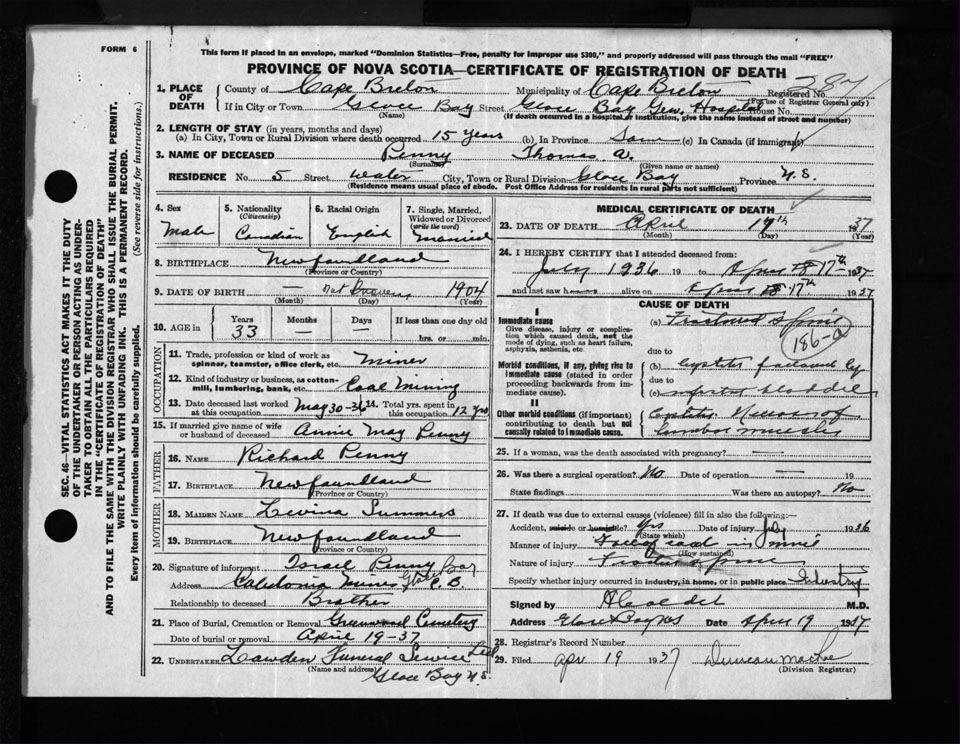 FORM 6
This form if placed in an envelope, marked "Dominion Statistics—Free, penalty for improper use $300," and properly addressed will pass through the mail "FREE"
PROVINCE OF NOVA SCOTIA—CERTIFICATE OF REGISTRATION OF DEATH
1. PLACE OF DEATH
County of Cape Breton Municipality of Cape Breton Registered No.
(For use of Registrar General only)
If in City or Town Glace Bay Street Glace Bay Gen. Hospital House No.
(Name) (If death occurred in a hospital or institution, give the name instead of street and number)
2. LENGTH OF STAY (in years, months and days)
(a) In City, Town or Rural Division where death occurred 15 years (b) In Province Same (c) In Canada (if immigrant)
3. NAME OF DECEASED Penny Thomas V.
(Surname) (Given name or names)
RESIDENCE No. 5 Street Water City, Town or Rural Division Glace Bay Province N.S.
(Residence means usual place of abode. Post Office Address for residents in rural parts not sufficient)
4. Sex Male
5. Nationality (Citizenship) Canadian
6. Racial Origin English
7. Single, Married, Widowed or Divorced (write the word) Married
8. BIRTHPLACE Newfoundland
(Province or Country)
9. DATE OF BIRTH — Not 1904
(Month) (Day) (Year)
10. AGE in Years 33 Months — Days — If less than one day old hrs. or min.
OCCUPATION
11. Trade, profession or kind of work as spinner, teamster, office clerk, etc. Miner
12. Kind of industry or business, as cotton-mill, lumbering, bank, etc. Coal Mining
13. Date deceased last worked at this occupation May 30-36 14. Total yrs. spent in this occupation 12 yrs
15. If married give name of wife or husband of deceased Annie May Penny
FATHER
16. NAME Richard Penny
17. BIRTHPLACE Newfoundland
(Province or Country)
MOTHER
18. MAIDEN NAME Levina Summers
19. BIRTHPLACE Newfoundland
(Province or Country)
20. Signature of informant Israel Penny
Address Caledonia Mines Glace Bay C.B.
Relationship to deceased Brother
21. Place of Burial, Cremation or Removal Greenwood Cemetery
Date of burial or removal April 19-37
22. UNDERTAKER Lawden Funeral Service Ltd
(Name and address) Glace Bay N.S.
MEDICAL CERTIFICATE OF DEATH
23. DATE OF DEATH April 17th 1937
(Month) (Day) (Year)
24. I HEREBY CERTIFY that I attended deceased from:
July 1936 19 to April 17th 1937
and last saw h alive on April 17th 1937
CAUSE OF DEATH
I
Immediate cause
Give disease, injury or complication which caused death, not the mode of dying, such as heart failure, asphyxia, asthenia, etc.
(a) Fractured Spine
186-a
due to
Morbid conditions, if any, giving rise to immediate cause (stated in order proceeding backwards from immediate cause).
(b) Cystitis
due to
(c)
II
Other morbid conditions (if important) contributing to death but not causally related to immediate cause.
lumbar muscles
25. If a woman, was the death associated with pregnancy? —
26. Was there a surgical operation? No Date of operation — 19
State findings Was there an autopsy? No
27. If death was due to external causes (violence) fill in also the following:—
Accident, suicide or homicide? Yes Date of injury July 1936
(State which)
Manner of injury Fall of coal in mine
(How sustained)
Nature of injury Fractured spine
Specify whether injury occurred in industry, in home, or in public place Industry
Signed by M.D.
Address Glace Bay NS Date April 19 1937
28. Registrar's Record Number
29. Filed Apr 19 1937 Duncan
(Division Registrar)
SEC. 46—VITAL STATISTICS ACT MAKES IT THE DUTY
OF THE UNDERTAKER OR PERSON ACTING AS UNDER-
TAKER TO OBTAIN ALL THE PARTICULARS REQUIRED
IN THE "CERTIFICATE OF REGISTRATION OF DEATH"
AND TO FILE THE SAME WITH THE DIVISION REGISTRAR WHO SHALL ISSUE THE BURIAL PERMIT.
WRITE PLAINLY WITH UNFADING INK. THIS IS A PERMANENT RECORD.
Every item of information should be carefully supplied. (See reverse side for instructions.)